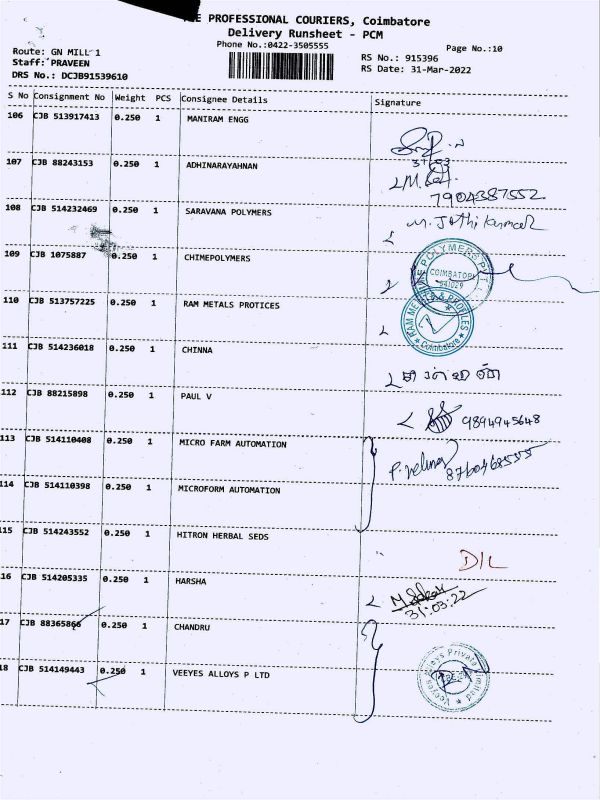 PROFESSIONAL COURIERS, Coimbatore
Delivery Runsheet - PCM
Phone No.:0422-3505555
Page No.:10
Route: GN MILL 1
Staff: PRAVEEN
DRS No.: DCJB91539610
RS No.: 915396
RS Date: 31-Mar-2022
S No Consignment No Weight PCS Consignee Details Signature
106 CJB 513917413 0.250 1 MANIRAM ENGG
107 CJB 88243153 0.250 1 ADHINARAYAHNAN
7904387552
108 CJB 514232469 0.250 1 SARAVANA POLYMERS
M. Jothi Kumar
109 CJB 1075887 0.250 1 CHIMEPOLYMERS
POLYMERS PVT
COIMBATORE
641029
110 CJB 513757225 0.250 1 RAM METALS PROTICES
RAM ME & PROFILES
Coimbatore
111 CJB 514236018 0.250 1 CHINNA
112 CJB 88215898 0.250 1 PAUL V
9894945648
113 CJB 514110408 0.250 1 MICRO FARM AUTOMATION
8760468555
114 CJB 514110398 0.250 1 MICROFORM AUTOMATION
115 CJB 514243552 0.250 1 HITRON HERBAL SEDS
D/L
16 CJB 514205335 0.250 1 HARSHA
31.03.22
17 CJB 88365866 0.250 1 CHANDRU
18 CJB 514149443 0.250 1 VEEYES ALLOYS P LTD
Veeyes Alloys Private Limited